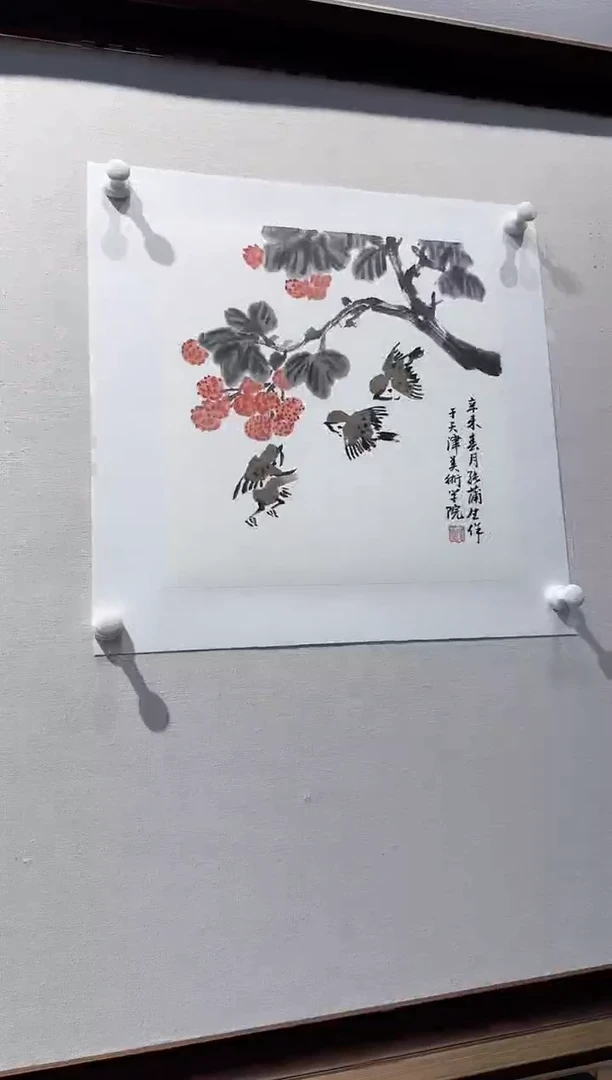 辛未春月張蒲生作
于天津美術學院